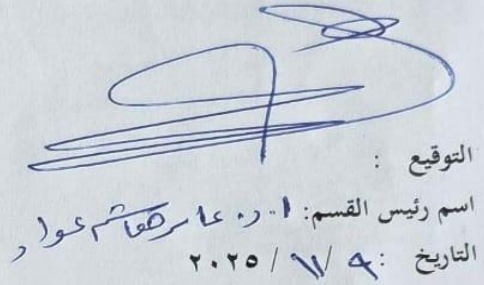 التوقيع :
اسم رئيس القسم: ا. د. عامر هاشم عواد
التاريخ : ٩ / ١١ / ٢٠٢٥